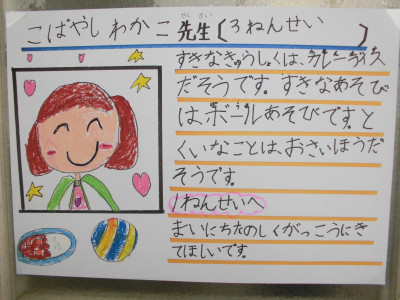 こばやし わかこ 先生 (3ねんせい )
せん せい
すきなきゅうしょくは、カレーライス
だそうです。すきなあそび
は、ボールあそびです。と
くいなことは、おさいほうだ
そうです。
1ねんせいへ
まいにちたのしくがっこうにき
てほしいです。